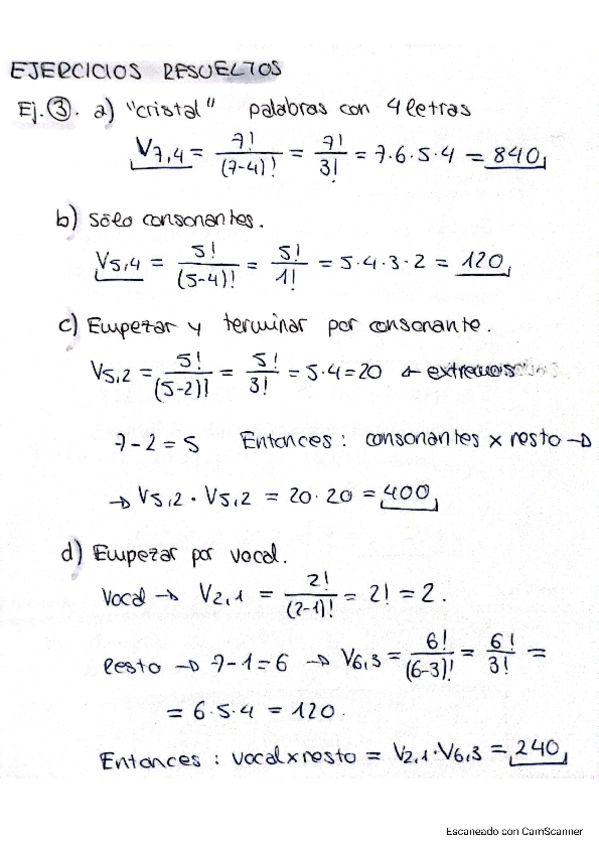 EJERCICIOS RESUELTOS
Ej. ③. a) "cristal" palabras con 4 letras
V7,4 = 7!/(7-4)! = 7!/3! = 7·6·5·4 = 840
b) Sólo consonantes.
V5,4 = 5!/(5-4)! = 5!/1! = 5·4·3·2 = 120
c) Empezar y terminar por consonante.
V5,2 = 5!/(5-2)! = 5!/3! = 5·4=20 ← extremos
7-2=5 Entonces: consonantes x resto →
→ V5,2 · V5,2 = 20·20 = 400
d) Empezar por vocal.
Vocal → V2,1 = 2!/(2-1)! = 2! = 2.
Resto → 7-1=6 → V6,3 = 6!/(6-3)! = 6!/3! =
= 6·5·4 = 120.
Entonces: vocal x resto = V2,1·V6,3 = 240
Escaneado con CamScanner